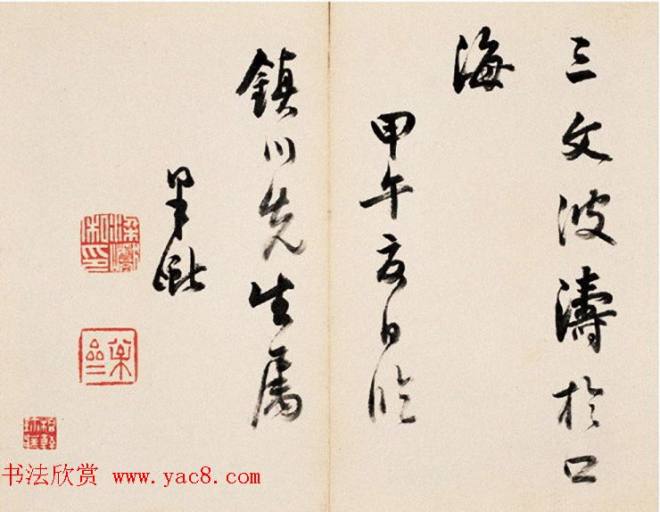 三文波濤於口
海
甲午夏日临
鎮川先生属
书法欣赏 www.yac8.com